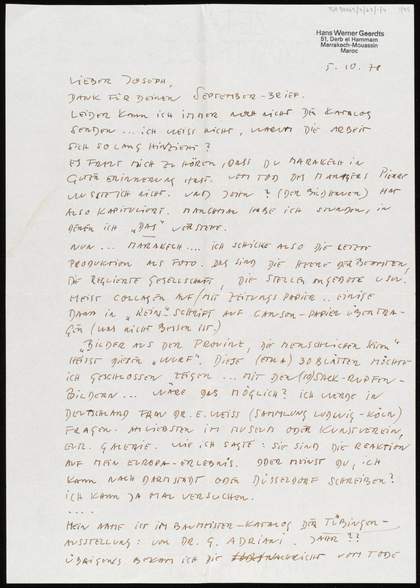 Hans Werner Geerdts
51, Derb el Hammam
Marrakech-Mouassin
Maroc
5. 10. 78
LIEBER JOSEPH,
DANK FÜR DEINEN SEPTEMBER-BRIEF.
LEIDER KANN ICH IMMER NOCH NICHT DEN KATALOG
SENDEN ... ICH WEISS NICHT, WARUM DIE ARBEIT
SICH SO LANG HINZIEHT?
ES FREUT MICH ZU HÖREN, DASS DU MARAKECH IN
GUTER ERINNERUNG HAST. VOM TOD DES MALERS PIERRE
WUSSTE ICH NICHT. UND JOHN? (DER BILDHAUER) HAT
ALSO KAPITULIERT. MANCHMAL HABE ICH STUNDEN, IN
DENEN ICH „DAS" VERSTEHE.
NUN ... MARAKECH .... ICH SCHICKE ALSO DIE LETZTE
PRODUKTION ALS FOTO. DAS SIND DIE HEERE DER BEAMTEN,
DIE REGLIERTE GESELLSCHAFT, DIE STELLENANGEBOTE USW.
MEIST COLLAGEN AUF/MIT ZEITUNGSPAPIER .. EINIGE
DANN IN „REIN"SCHRIFT AUF CANSON-PAPIER ÜBERTRA-
GEN (WAS NICHT BESSER IST.)
„BILDER AUS DER PROVINZ, DIE MENSCHLICHEN
HEISST DIESER „WURF". DIESE (ETWA) 30 BLÄTTER MÖCHTE
ICH GESCHLOSSEN ZEIGEN ... MIT DEN (10) SACK-RUPFEN-
BILDERN ... WÄRE DAS MÖGLICH? ICH WERDE IN
DEUTSCHLAND FRAU DR. E. WEISS (SAMMLUNG LUDWIG - KÖLN)
FRAGEN. AM LIEBSTEN IM MUSEUM ODER KUNSTVEREIN,
EVTL. GALERIE. WIE ICH SAGTE: SIE SIND DIE REAKTION
AUF MEIN EUROPA-ERLEBNIS. ODER MEINST DU, ICH
KANN NACH DARMSTADT ODER DÜSSELDORF SCHREIBEN?
ICH KANN JA MAL VERSUCHEN.
....
MEIN NAME IST IM BAUMEISTER-KATALOG DER TÜBINGEN-
AUSSTELLUNG: VON DR. G. ADRIANI. JAHR??
ÜBRIGENS BEKAM ICH DIE NACHRICHT VOM TODE